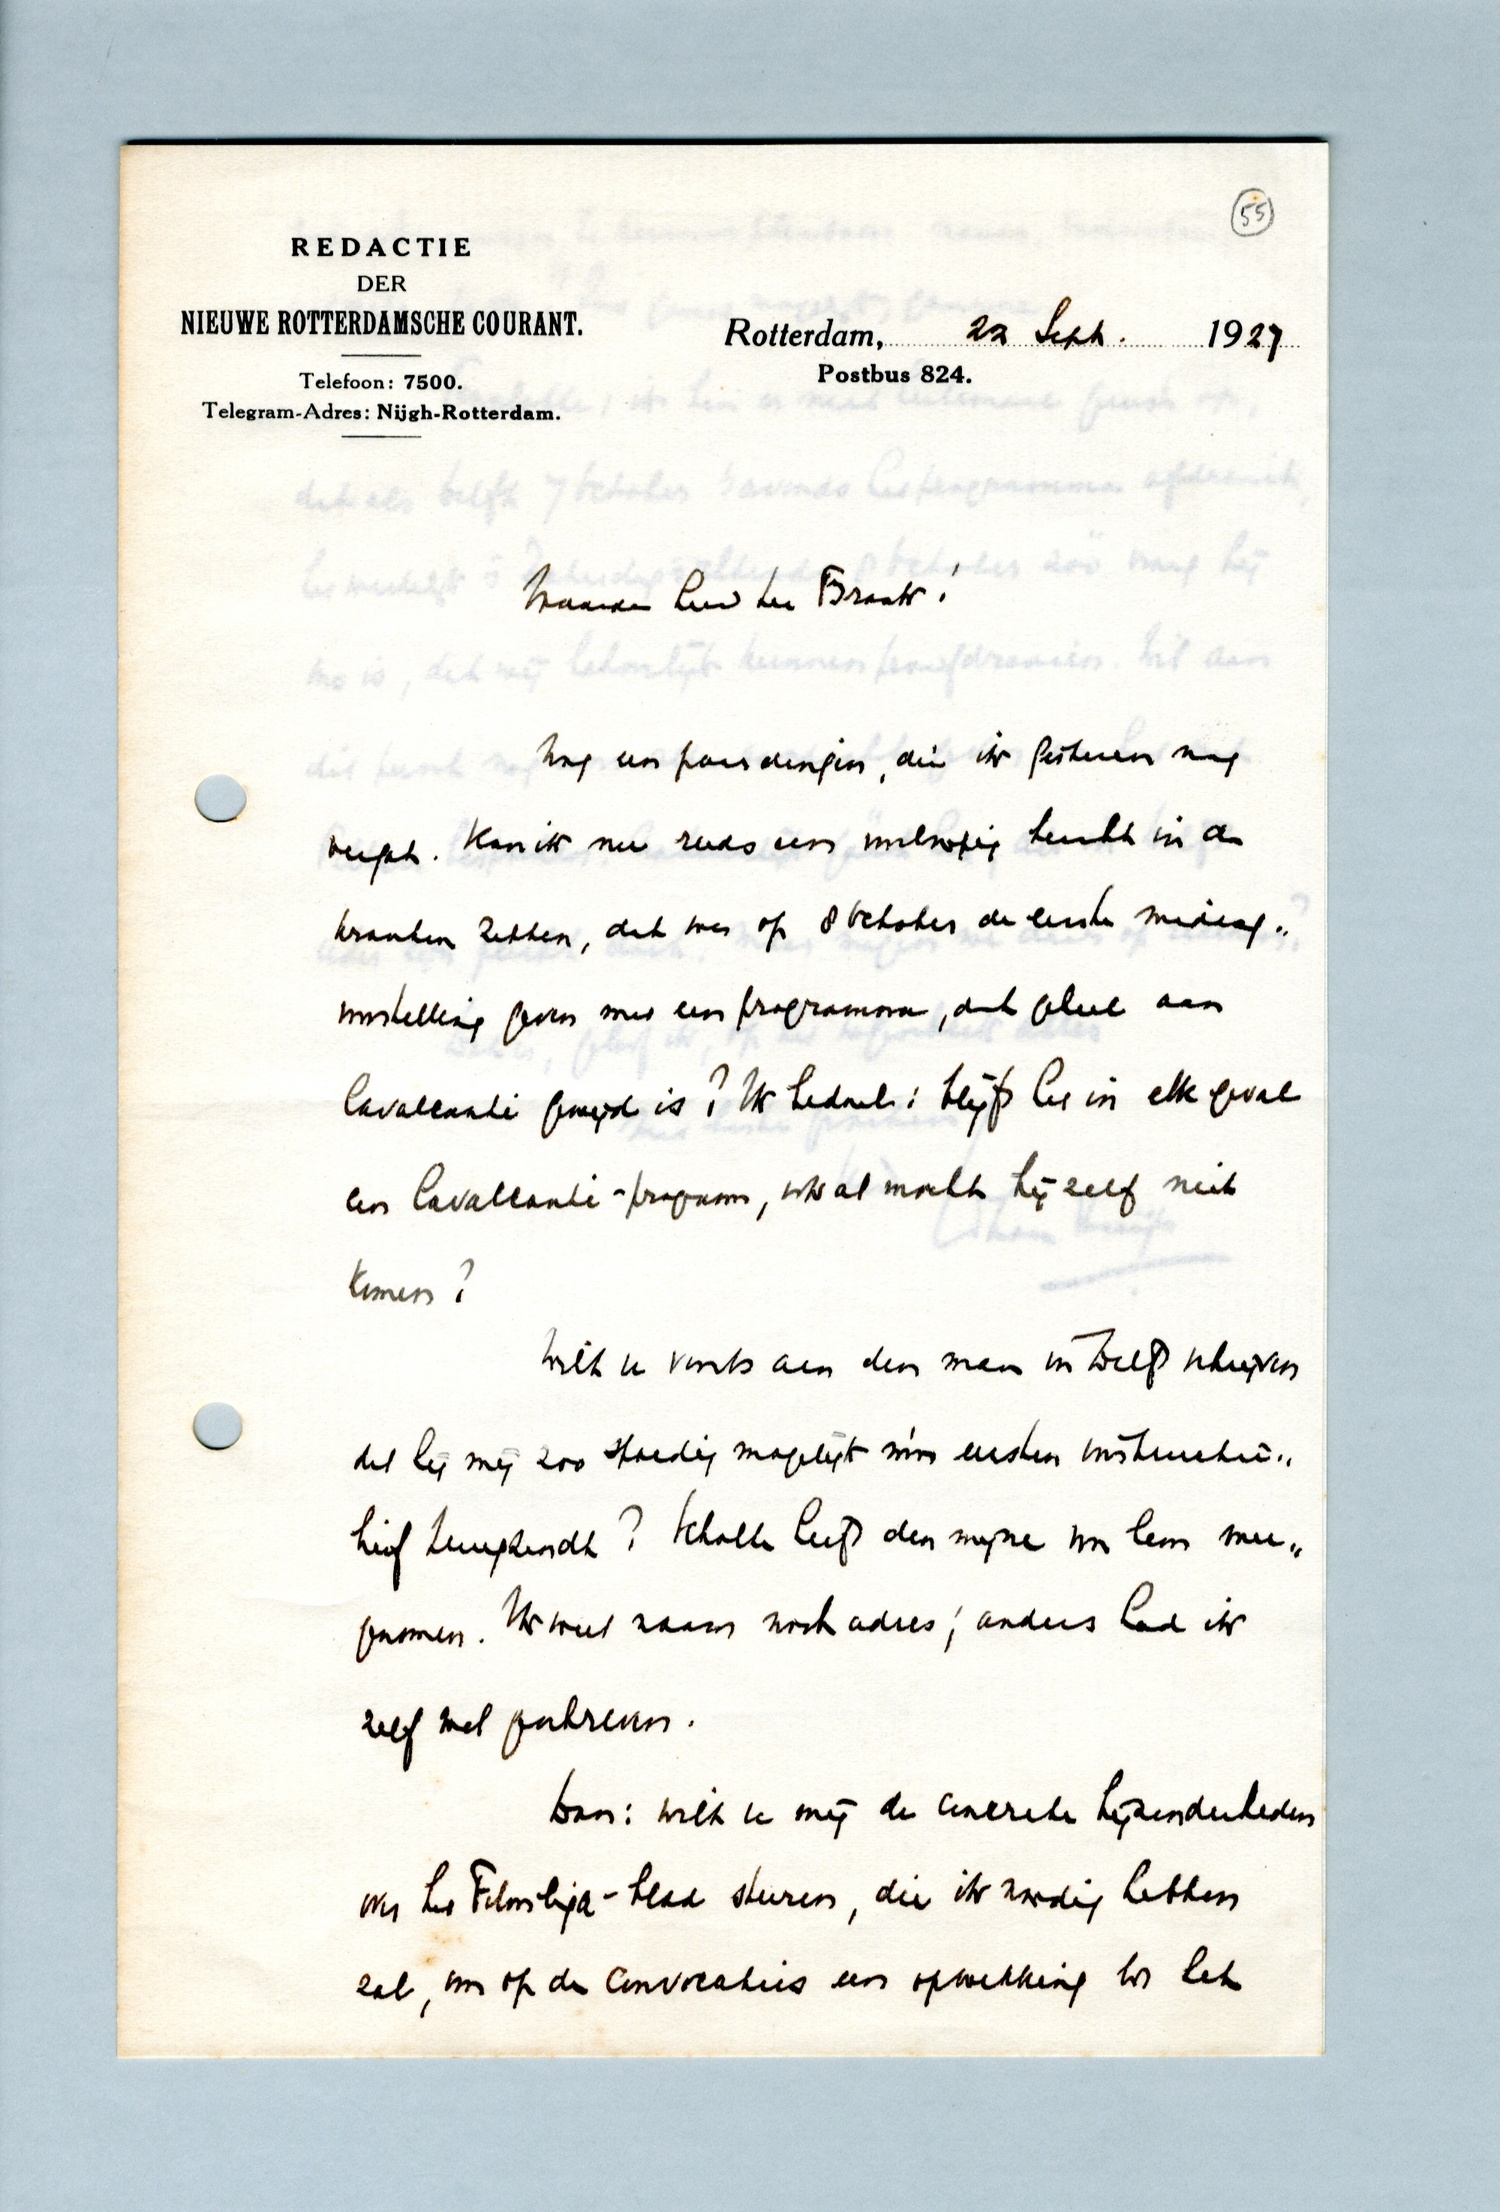 55
REDACTIE
DER
NIEUWE ROTTERDAMSCHE COURANT.
Telefoon: 7500.
Telegram-Adres: Nijgh-Rotterdam.
Rotterdam, 22 Sept. 1927
Postbus 824.
Waarde heer ter Braak!
Nog een paar dingen, die ik gisteren nog
vergat. Kan ik nu reeds een voorloopig bericht in de
kranten zetten, dat we op 8 October de eerste middag-
voorstelling geven met een programma, dat geheel aan
Cavalcanti gewijd is? Ik bedoel: blijft het in elk geval
een Cavalcanti-program, ook al mocht hij zelf niet
komen?
Wilt u voorts aan den man in Delft schrijven
dat hij mij zoo spoedig mogelijk mijn eersten instructie-
brief terugzendt? Scholte heeft den mijne voor hem mee-
genomen. Ik weet naam noch adres; anders had ik
zelf wel geschreven.
Dan: wilt u mij de concrete bijzonderheden
over het Filmliga-blad sturen, die ik noodig hebben
zal, om op de convocaties een opwekking tot het